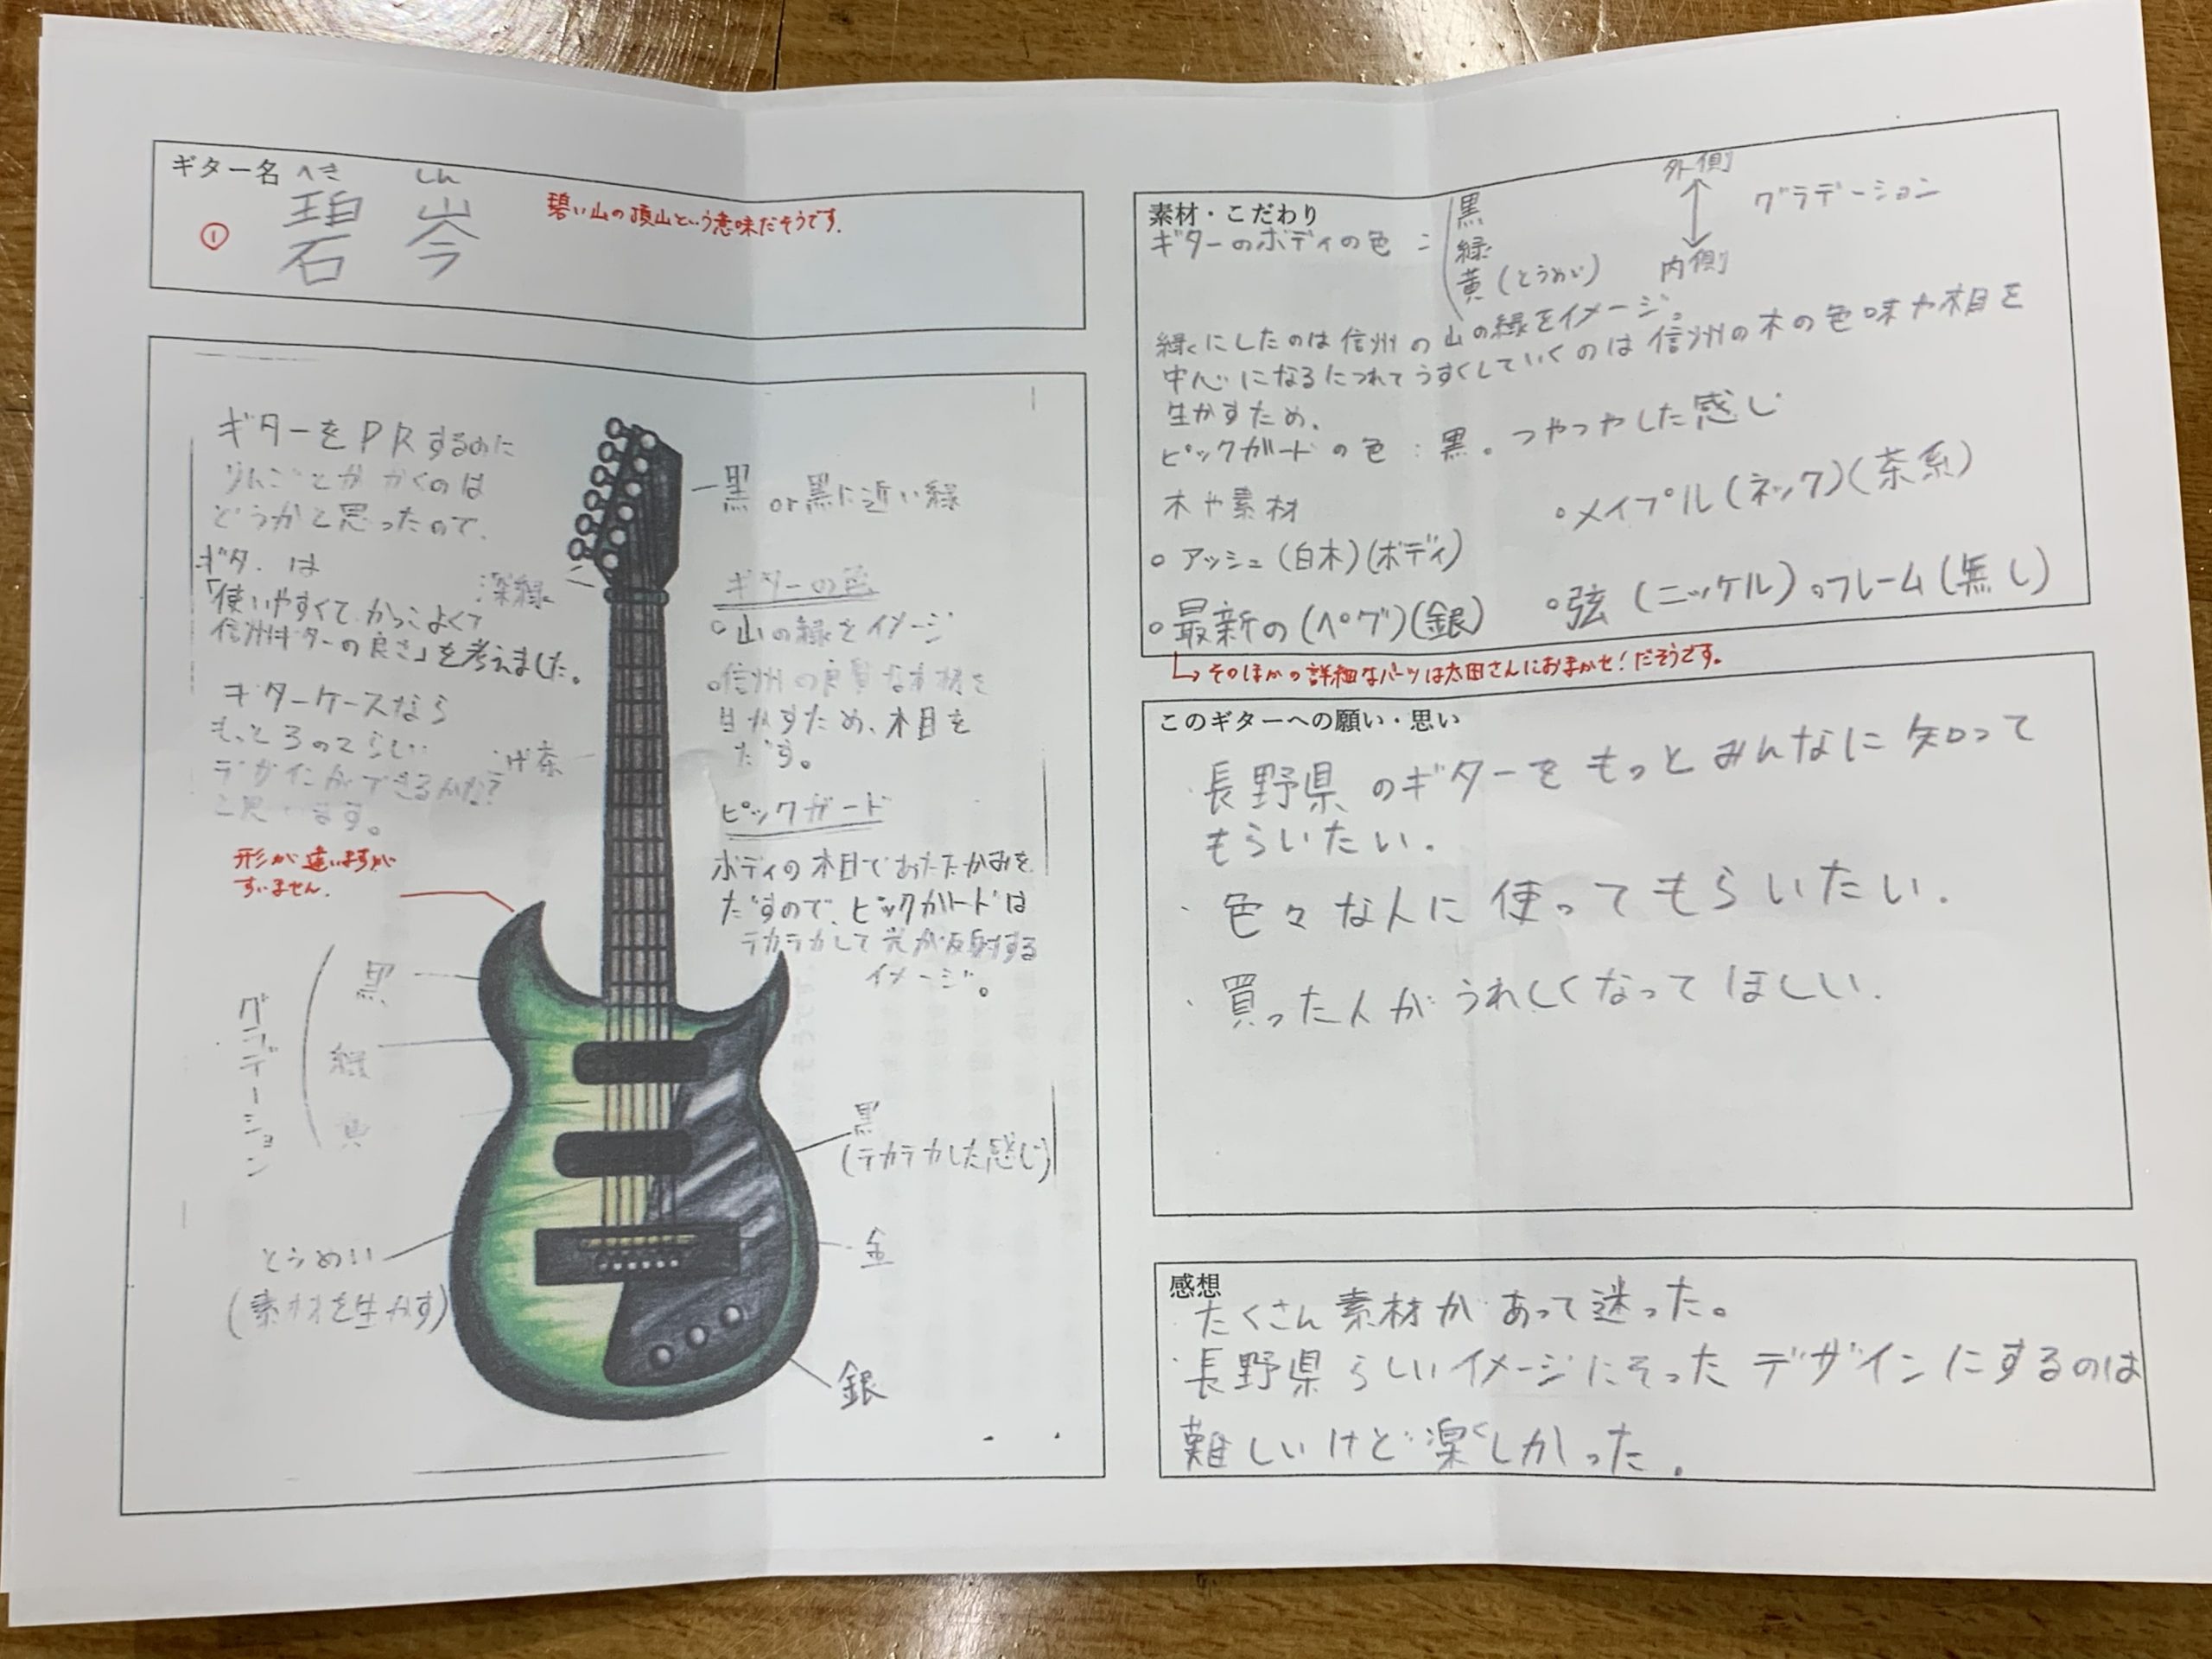 ギター名
へき しん
① 碧岑
碧い山の頂山という意味だそうです。
ギターをPRするのに
りんごとかかくのは
どうかと思ったので、
ギタ は
「使いやすくて、かっこよくて
信州ギターの良さ」を考えました。
ギターケースなら
もっと
デザインができるかな?
と思 ます。
形が違いますが
すいません。
グラデーション
黒
緑
黄
とうめい
(素材を生かす)
黒 or 黒に近い緑
深緑
ギターの色
○山の緑をイメージ
○信州の良質な木材を
生かすため、木目を
だす。
げ茶
ピックガード
ボディの木目であたたかみを
だすので、ピックガードは
テカテカして光が反射する
イメージ。
黒
(テカテカした感じ)
金
銀
素材・こだわり
ギターのボディの色=
黒
緑
黄(とうめい)
外側
内側
グラデーション
緑にしたのは信州の山の緑をイメージ。
中心になるにつれてうすくしていくのは信州の木の色味や木目を
生かすため。
ピックガードの色:黒。つやつやした感じ
木や素材
○アッシュ(白木)(ボディ)
○メイプル(ネック)(茶系)
○最新の(ペグ)(銀)
○弦(ニッケル)○フレーム(無し)
↳そのほかの詳細なパーツは太田さんにおまかせ!だそうです。
このギターへの願い・思い
・長野県のギターをもっとみんなに知って
もらいたい.
・色々な人に使ってもらいたい.
・買った人がうれしくなってほしい.
感想
・たくさん素材があって迷った。
・長野県らしいイメージにそったデザインにするのは
難しいけど楽しかった.